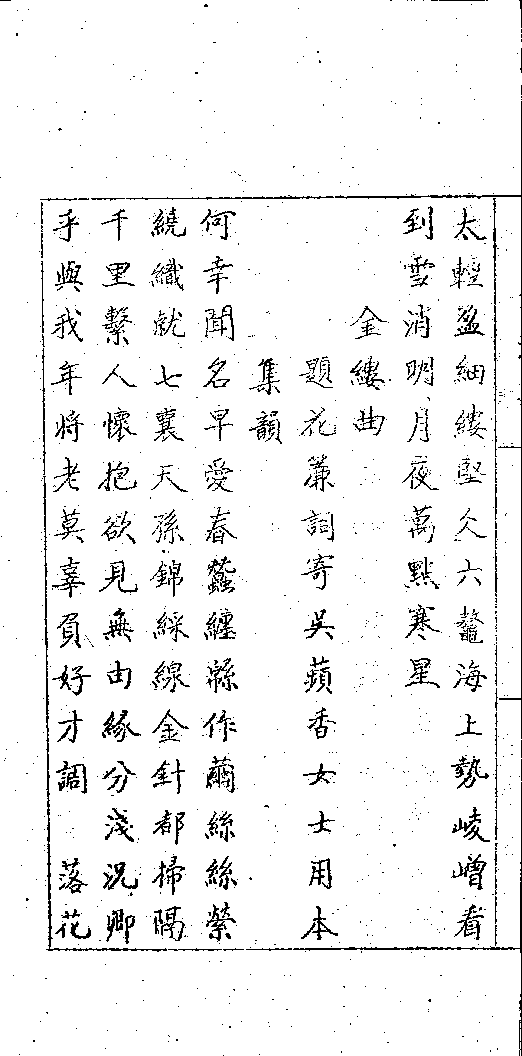 太輕盈細縷堅久六鼇海上勢崚嶒看
到雪消明月夜萬點寒星
金縷曲
題花簾詞寄吳蘋香女士用本
集韻
何幸聞名早愛春蠶纏緜作繭絲絲縈
繞織就七襄天孫錦綵線金針都掃隔
千里繫人懷抱欲見無由緣分淺況卿
乎與我年將老莫辜負好才調　落花